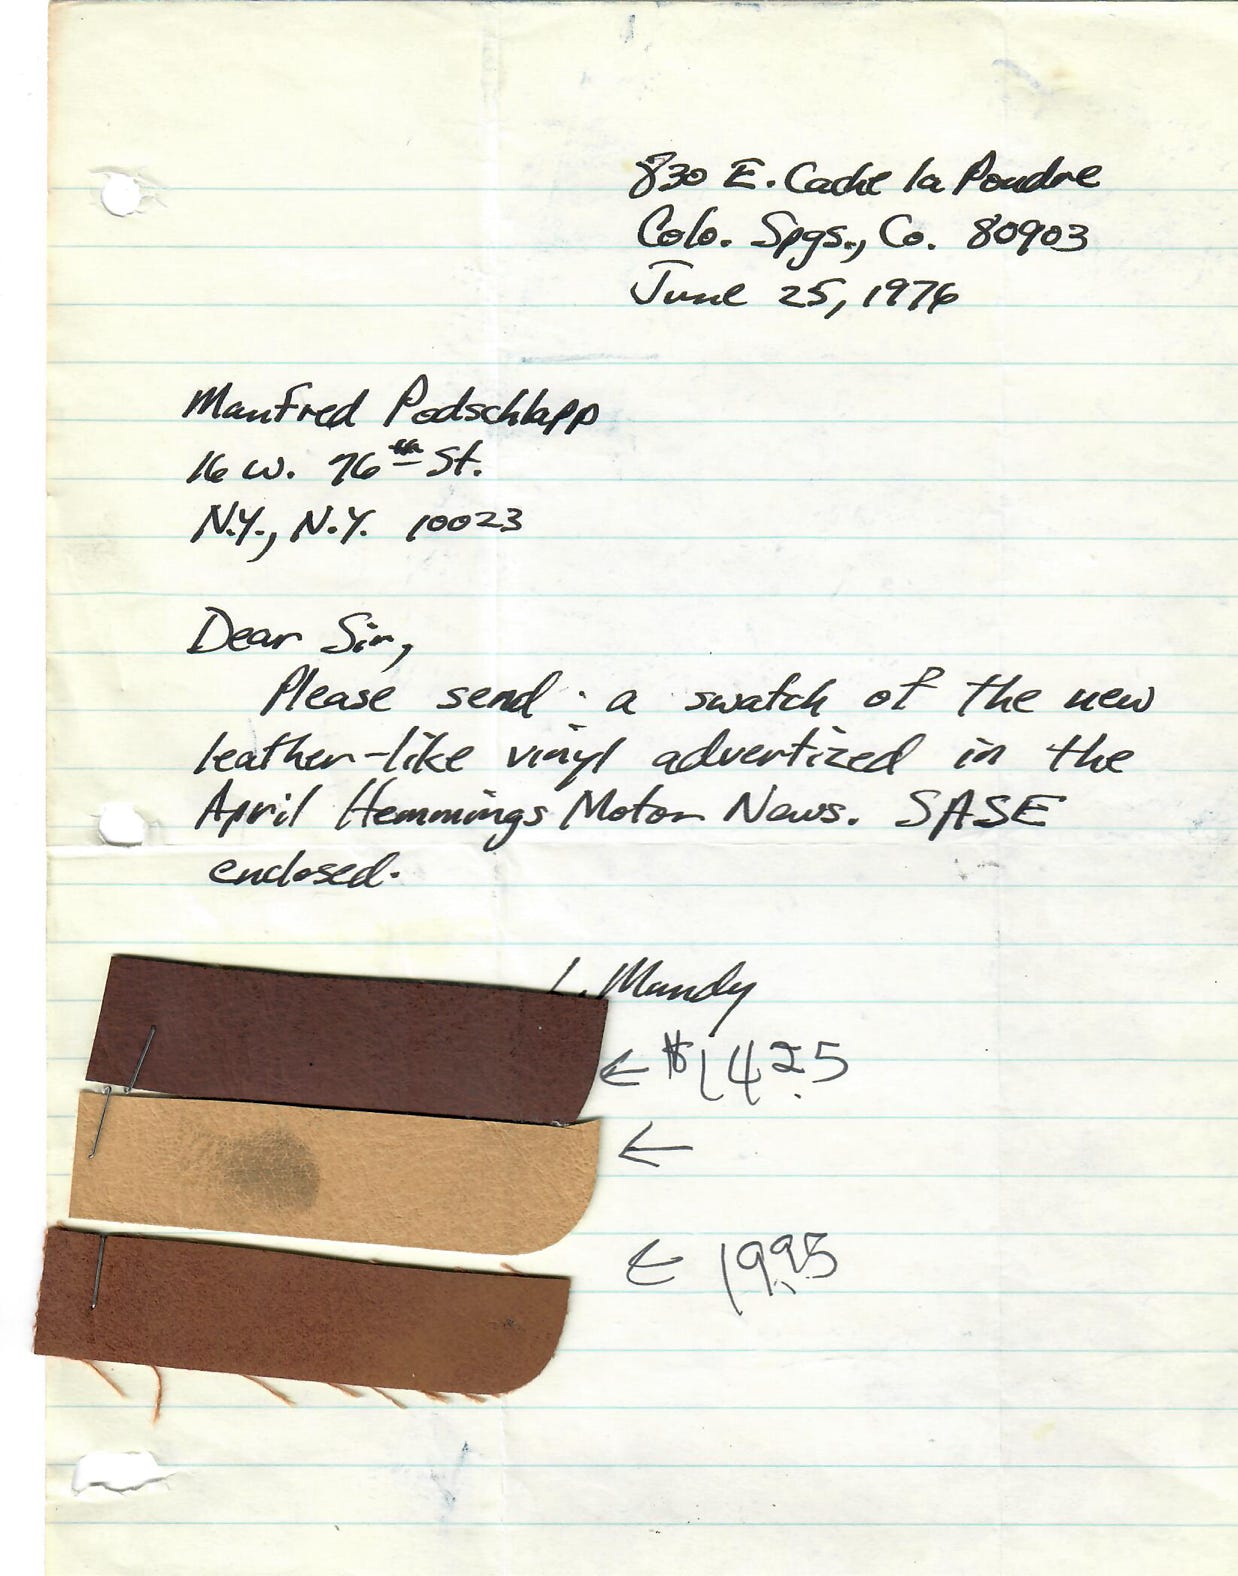 830 E. Cache la Poudre
Colo. Spgs., Co. 80903
June 25, 1976
Manfred Podschlapp
16 W. 76th St.
N.Y., N.Y. 10023
Dear Sir,
Please send a swatch of the new
leather-like vinyl advertized in the
April Hemmings Motor News. SASE
enclosed.
L. Mundy
← $14.25
←
← 19.95